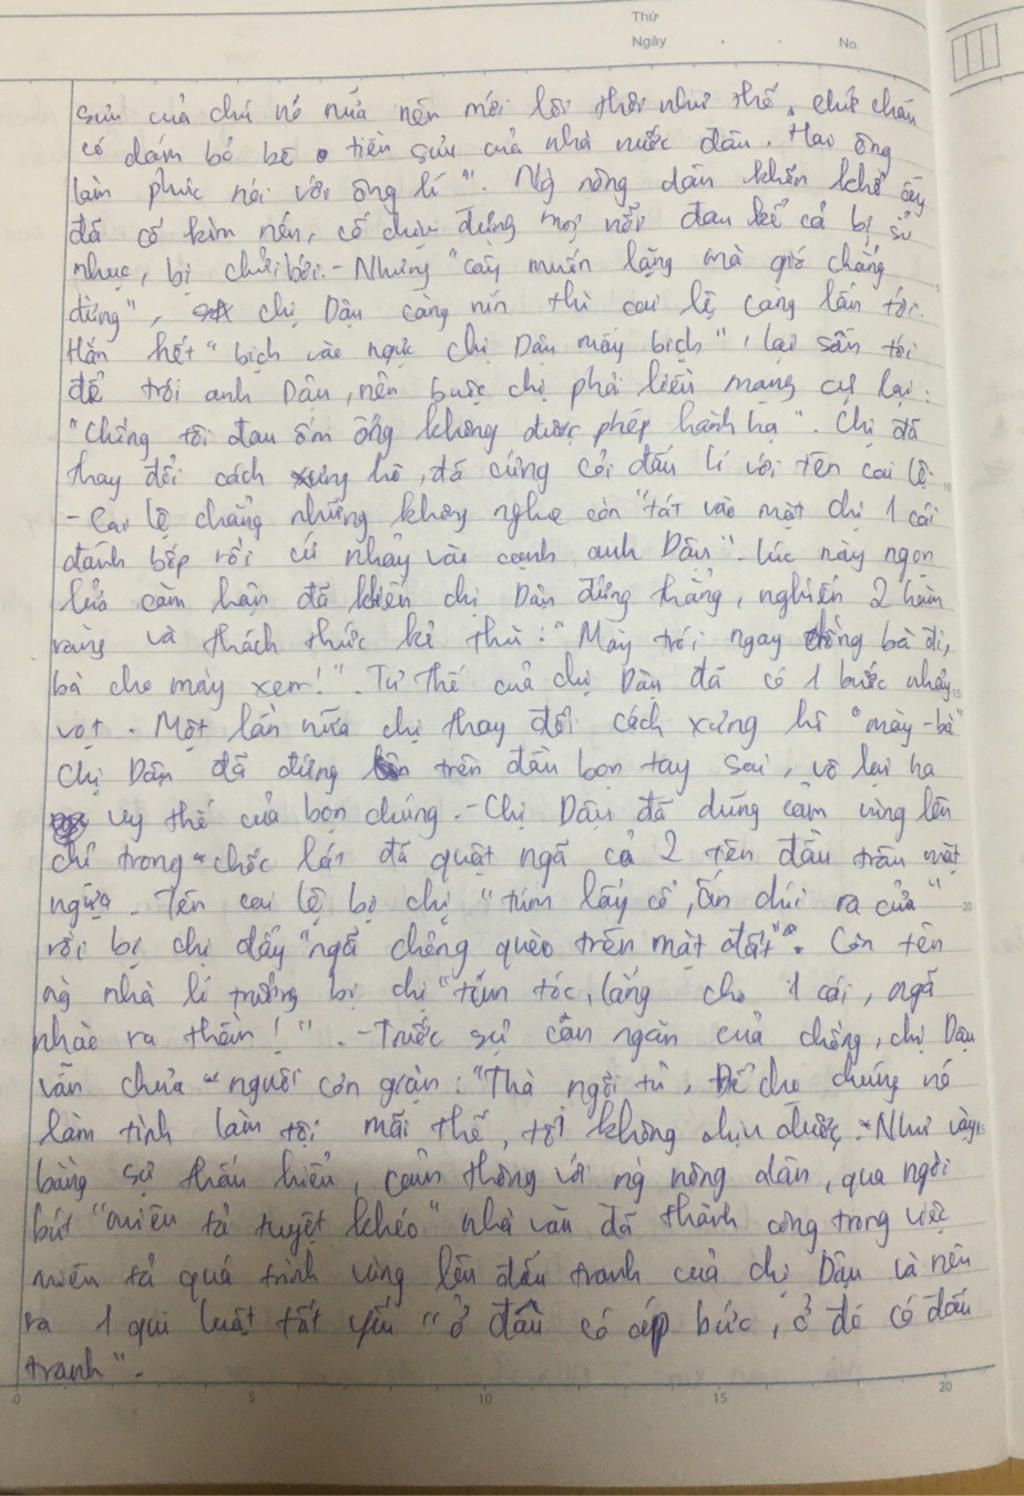 Thứ
Ngày . . No.
sưu của chú nó nữa nên mới lôi thôi như thế, chứ cháu
có dám bỏ bê tiền sưu của nhà nước đâu. Hai ông
làm phúc nói với ông lí". Ng` nông dân khốn khổ ấy
đã cố kìm nén, cố chịu đựng mọi nỗi đau kể cả bị sỉ
nhục, bị chửi bới. - Nhưng "cây muốn lặng mà gió chẳng
đừng", chị Dậu càng nín thì cai lệ càng lấn tới.
Hắn hết "bịch vào ngực chị Dậu mấy bịch", lại sấn tới
để trói anh Dậu, nên buộc chị phải liều mạng cự lại:
"Chồng tôi đau ốm ông không được phép hành hạ". Chị đã
thay đổi cách xưng hô, đã cứng cỏi đấu lí với tên cai lệ.
- Cai lệ chẳng những không nghe còn "tát vào mặt chị 1 cái
đánh bốp rồi cứ nhảy vào cạnh anh Dậu". Lúc này ngọn
lửa căm hận đã khiến chị Dậu đứng thẳng, nghiến 2 hàm
răng và thách thức kẻ thù: "Mày trói ngay chồng bà đi,
bà cho mày xem!". Tư thế của chị Dậu đã có 1 bước nhảy
vọt. Một lần nữa chị thay đổi cách xưng hô "mày-bà"
Chị Dậu đã đứng trên đầu bọn tay sai, hạ
uy thế của bọn chúng. - Chị Dậu đã dũng cảm vùng lên
chỉ trong "chốc lát đã quật ngã cả 2 tên đầu trâu mặt
ngựa. Tên cai lệ bị chị "túm lấy cổ, ấn dúi ra cửa"
rồi bị chị đẩy "ngã chỏng quèo trên mặt đất". Còn tên
ng` nhà lí trưởng bị chị "túm tóc, lẳng cho 1 cái, ngã
nhào ra thềm!". - Trước sự căn ngăn của chồng, chị Dậu
vẫn chưa nguôi cơn giận: "Thà ngồi tù, để cho chúng nó
làm tình làm tội mãi thế, tôi không chịu được. * Như vậy
bằng sự thấu hiểu, cảm thông với ng` nông dân, qua ngòi
bút "miêu tả tuyệt khéo" nhà văn đã thành công trong việc
miêu tả quá trình vùng lên đấu tranh của chị Dậu và nêu
ra 1 qui luật tất yếu "ở đâu có áp bức, ở đó có đấu
tranh".
0 5 10 15 20